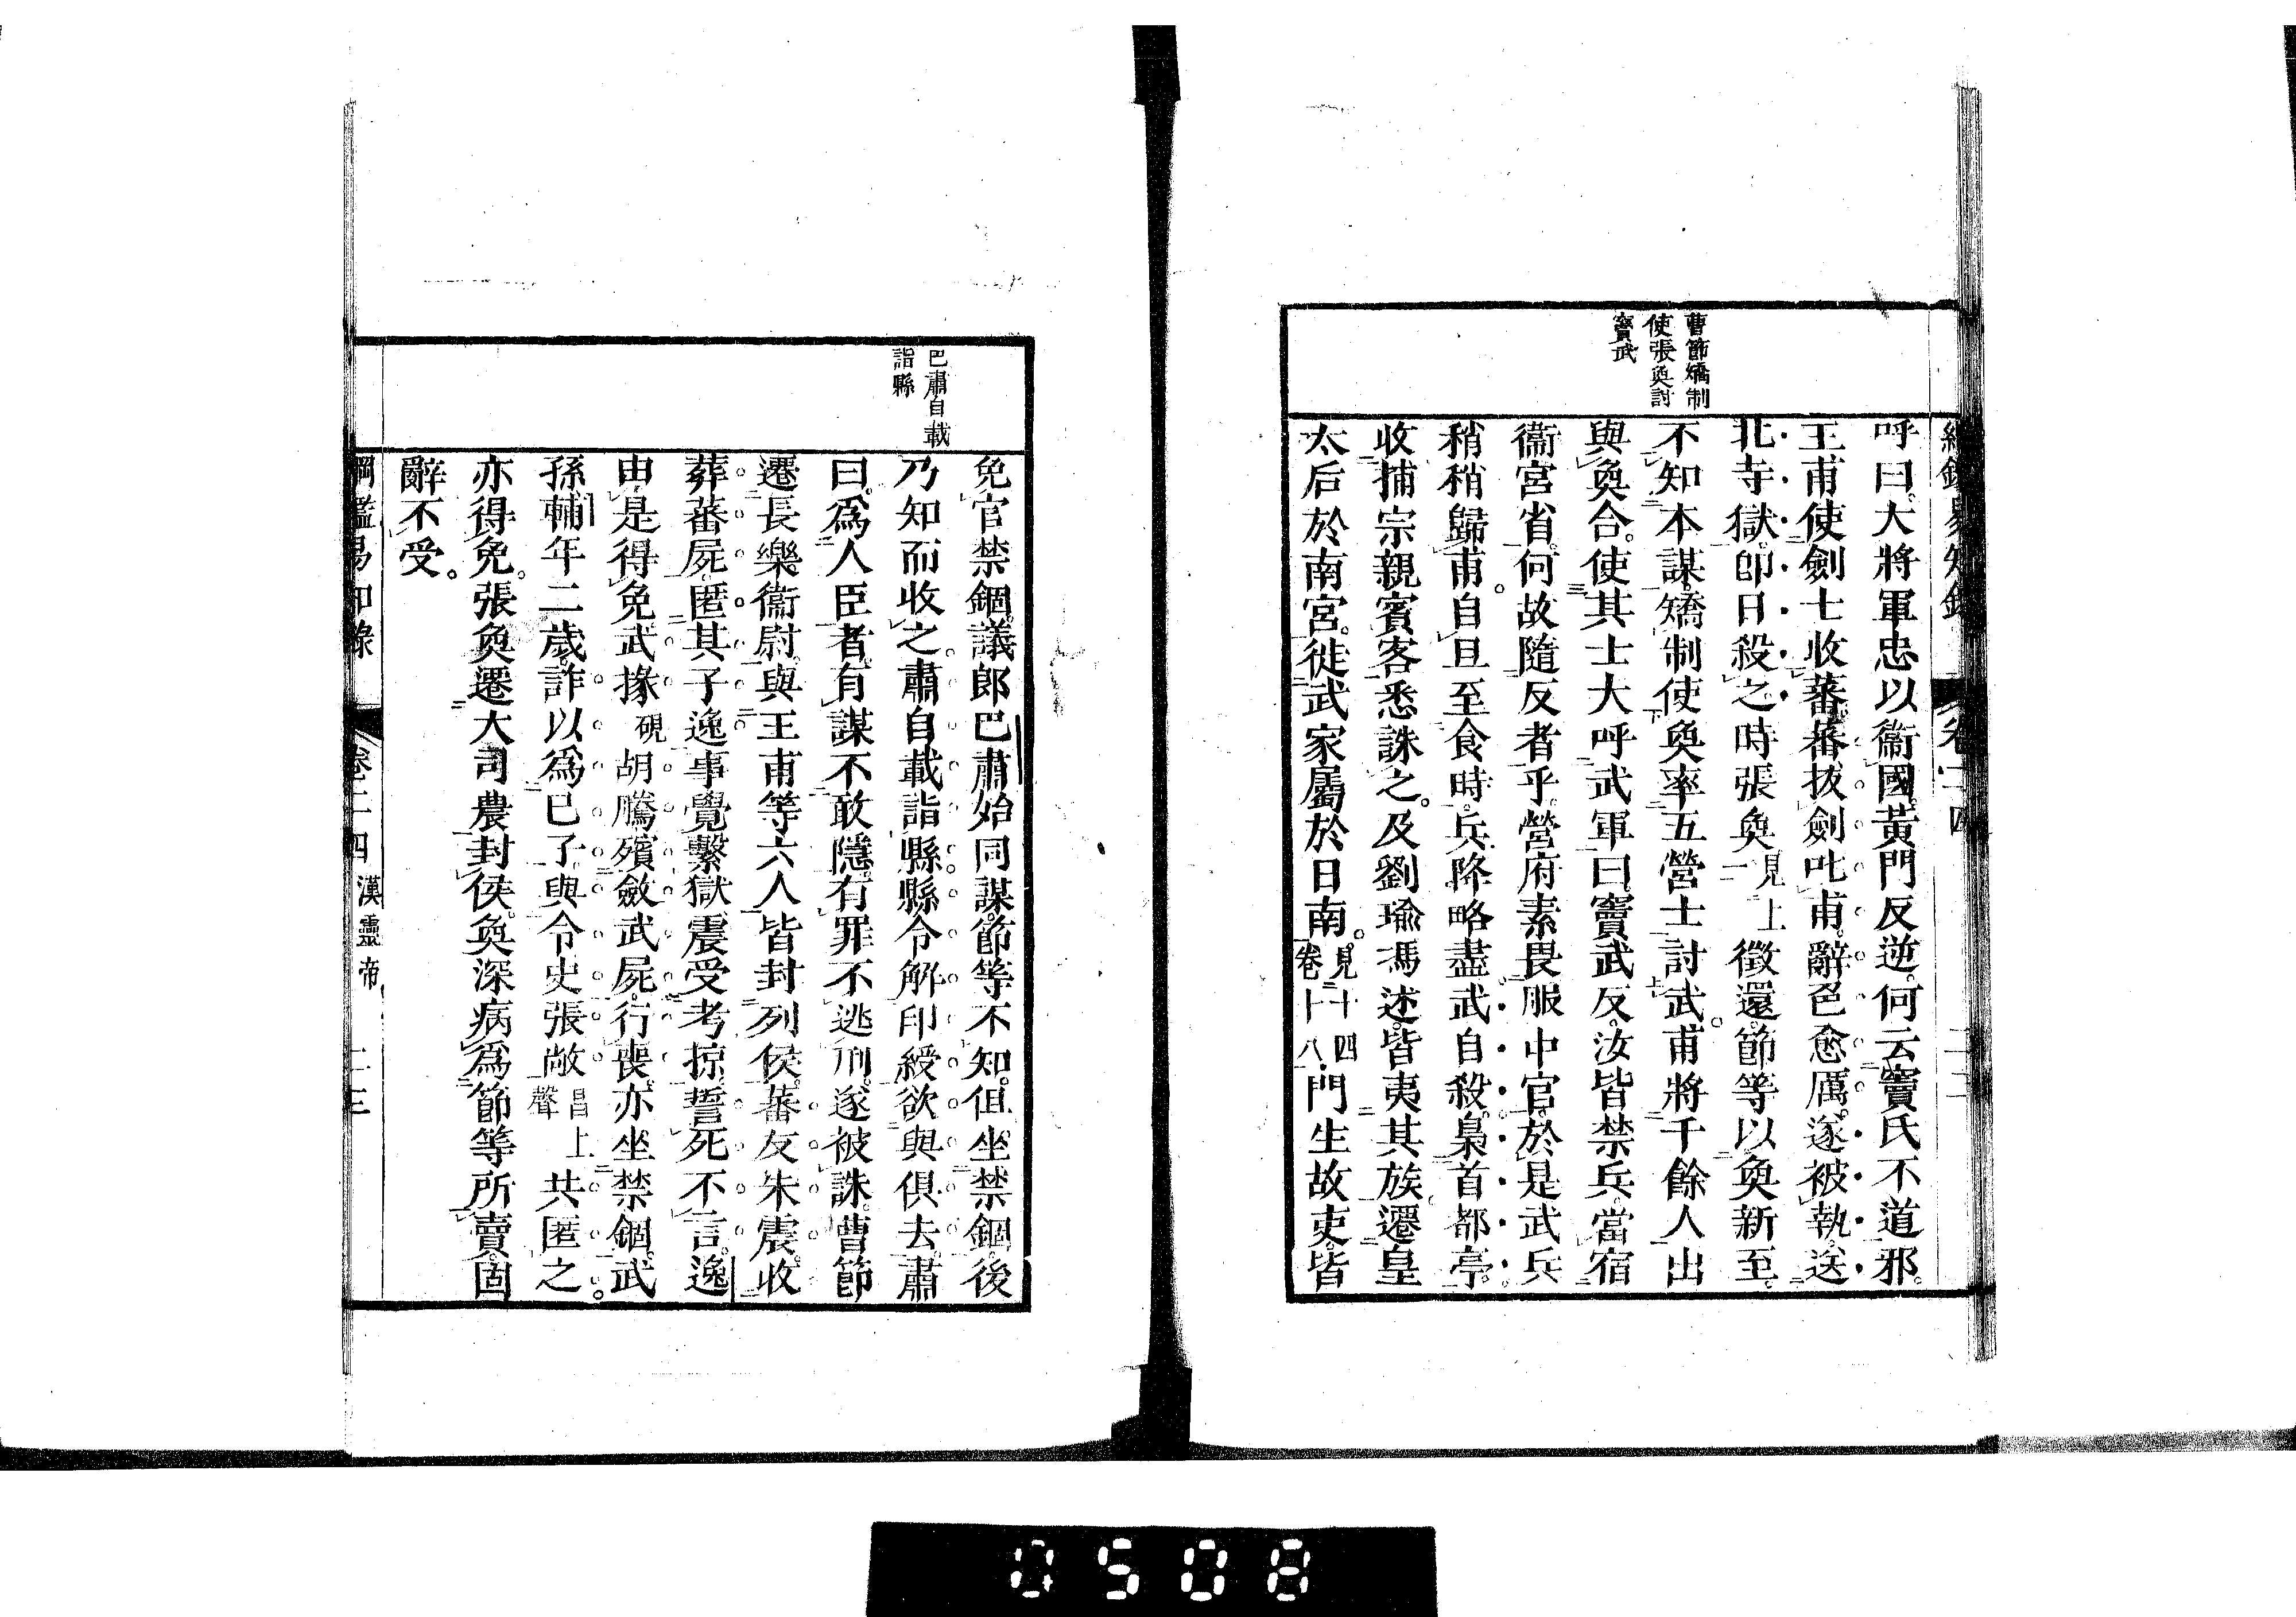 曹節矯制
使張奐討
竇武
呼曰大將軍忠以衞國黃門反逆何云竇氏不道邪
王甫使劍士收蕃蕃拔劍叱甫辭色愈厲遂被執送
北寺獄卽日殺之時張奐見上徵還節等以奐新至
不知本謀矯制使奐率五營士討武甫將千餘人出
與奐合使其士大呼武軍曰竇武反汝皆禁兵當宿
衞宮省何故隨反者乎營府素畏服中官於是武兵
稍稍歸甫自旦至食時兵降略盡武自殺梟首都亭
收捕宗親賓客悉誅之及劉瑜馮述皆夷其族遷皇
太后於南宮徙武家屬於日南見十四卷十八門生故吏皆
巴肅自載
詣縣
免官禁錮議郎巴肅始同謀節等不知但坐禁錮後
乃知而收之肅自載詣縣縣令解印綬欲與俱去肅
曰爲人臣者有謀不敢隱有罪不逃刑遂被誅曹節
遷長樂衞尉與王甫等六人皆封列侯蕃友朱震收
葬蕃屍匿其子逸事覺繫獄震受考掠誓死不言逸
由是得免武掾硯胡騰殯斂武屍行喪亦坐禁錮武
孫輔年二歲詐以爲己子與令史張敞昌上聲共匿之
亦得免張奐遷大司農封侯奐深病爲節等所賣固
辭不受
綱鑑易知錄 卷二四 漢靈帝 二三
0508